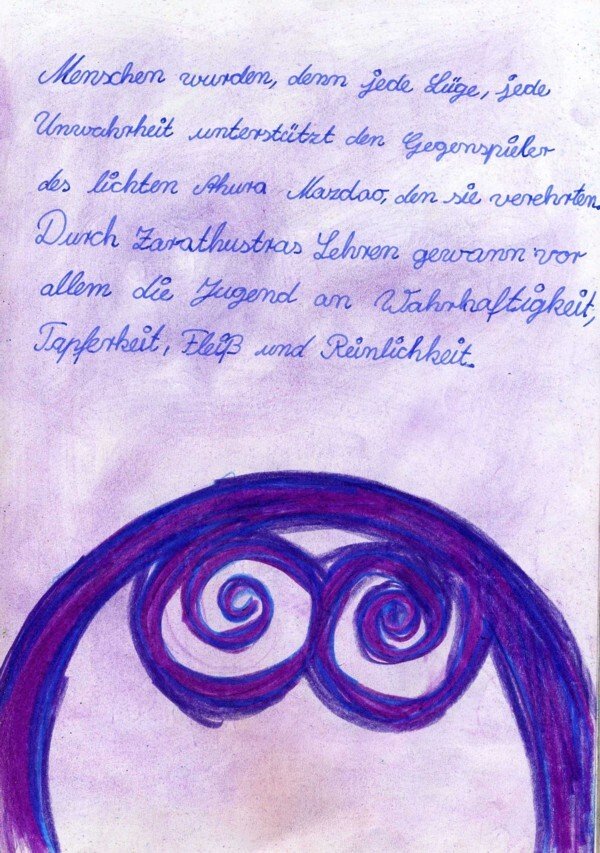 Menschen wurden, denn jede Lüge, jede
Unwahrheit unterstützt den Gegenspieler
des lichten Ahura Mazdao, den sie verehrten.
Durch Zarathustras Lehren gewann vor
allem die Jugend an Wahrhaftigkeit,
Tapferkeit, Fleiß und Reinlichkeit.